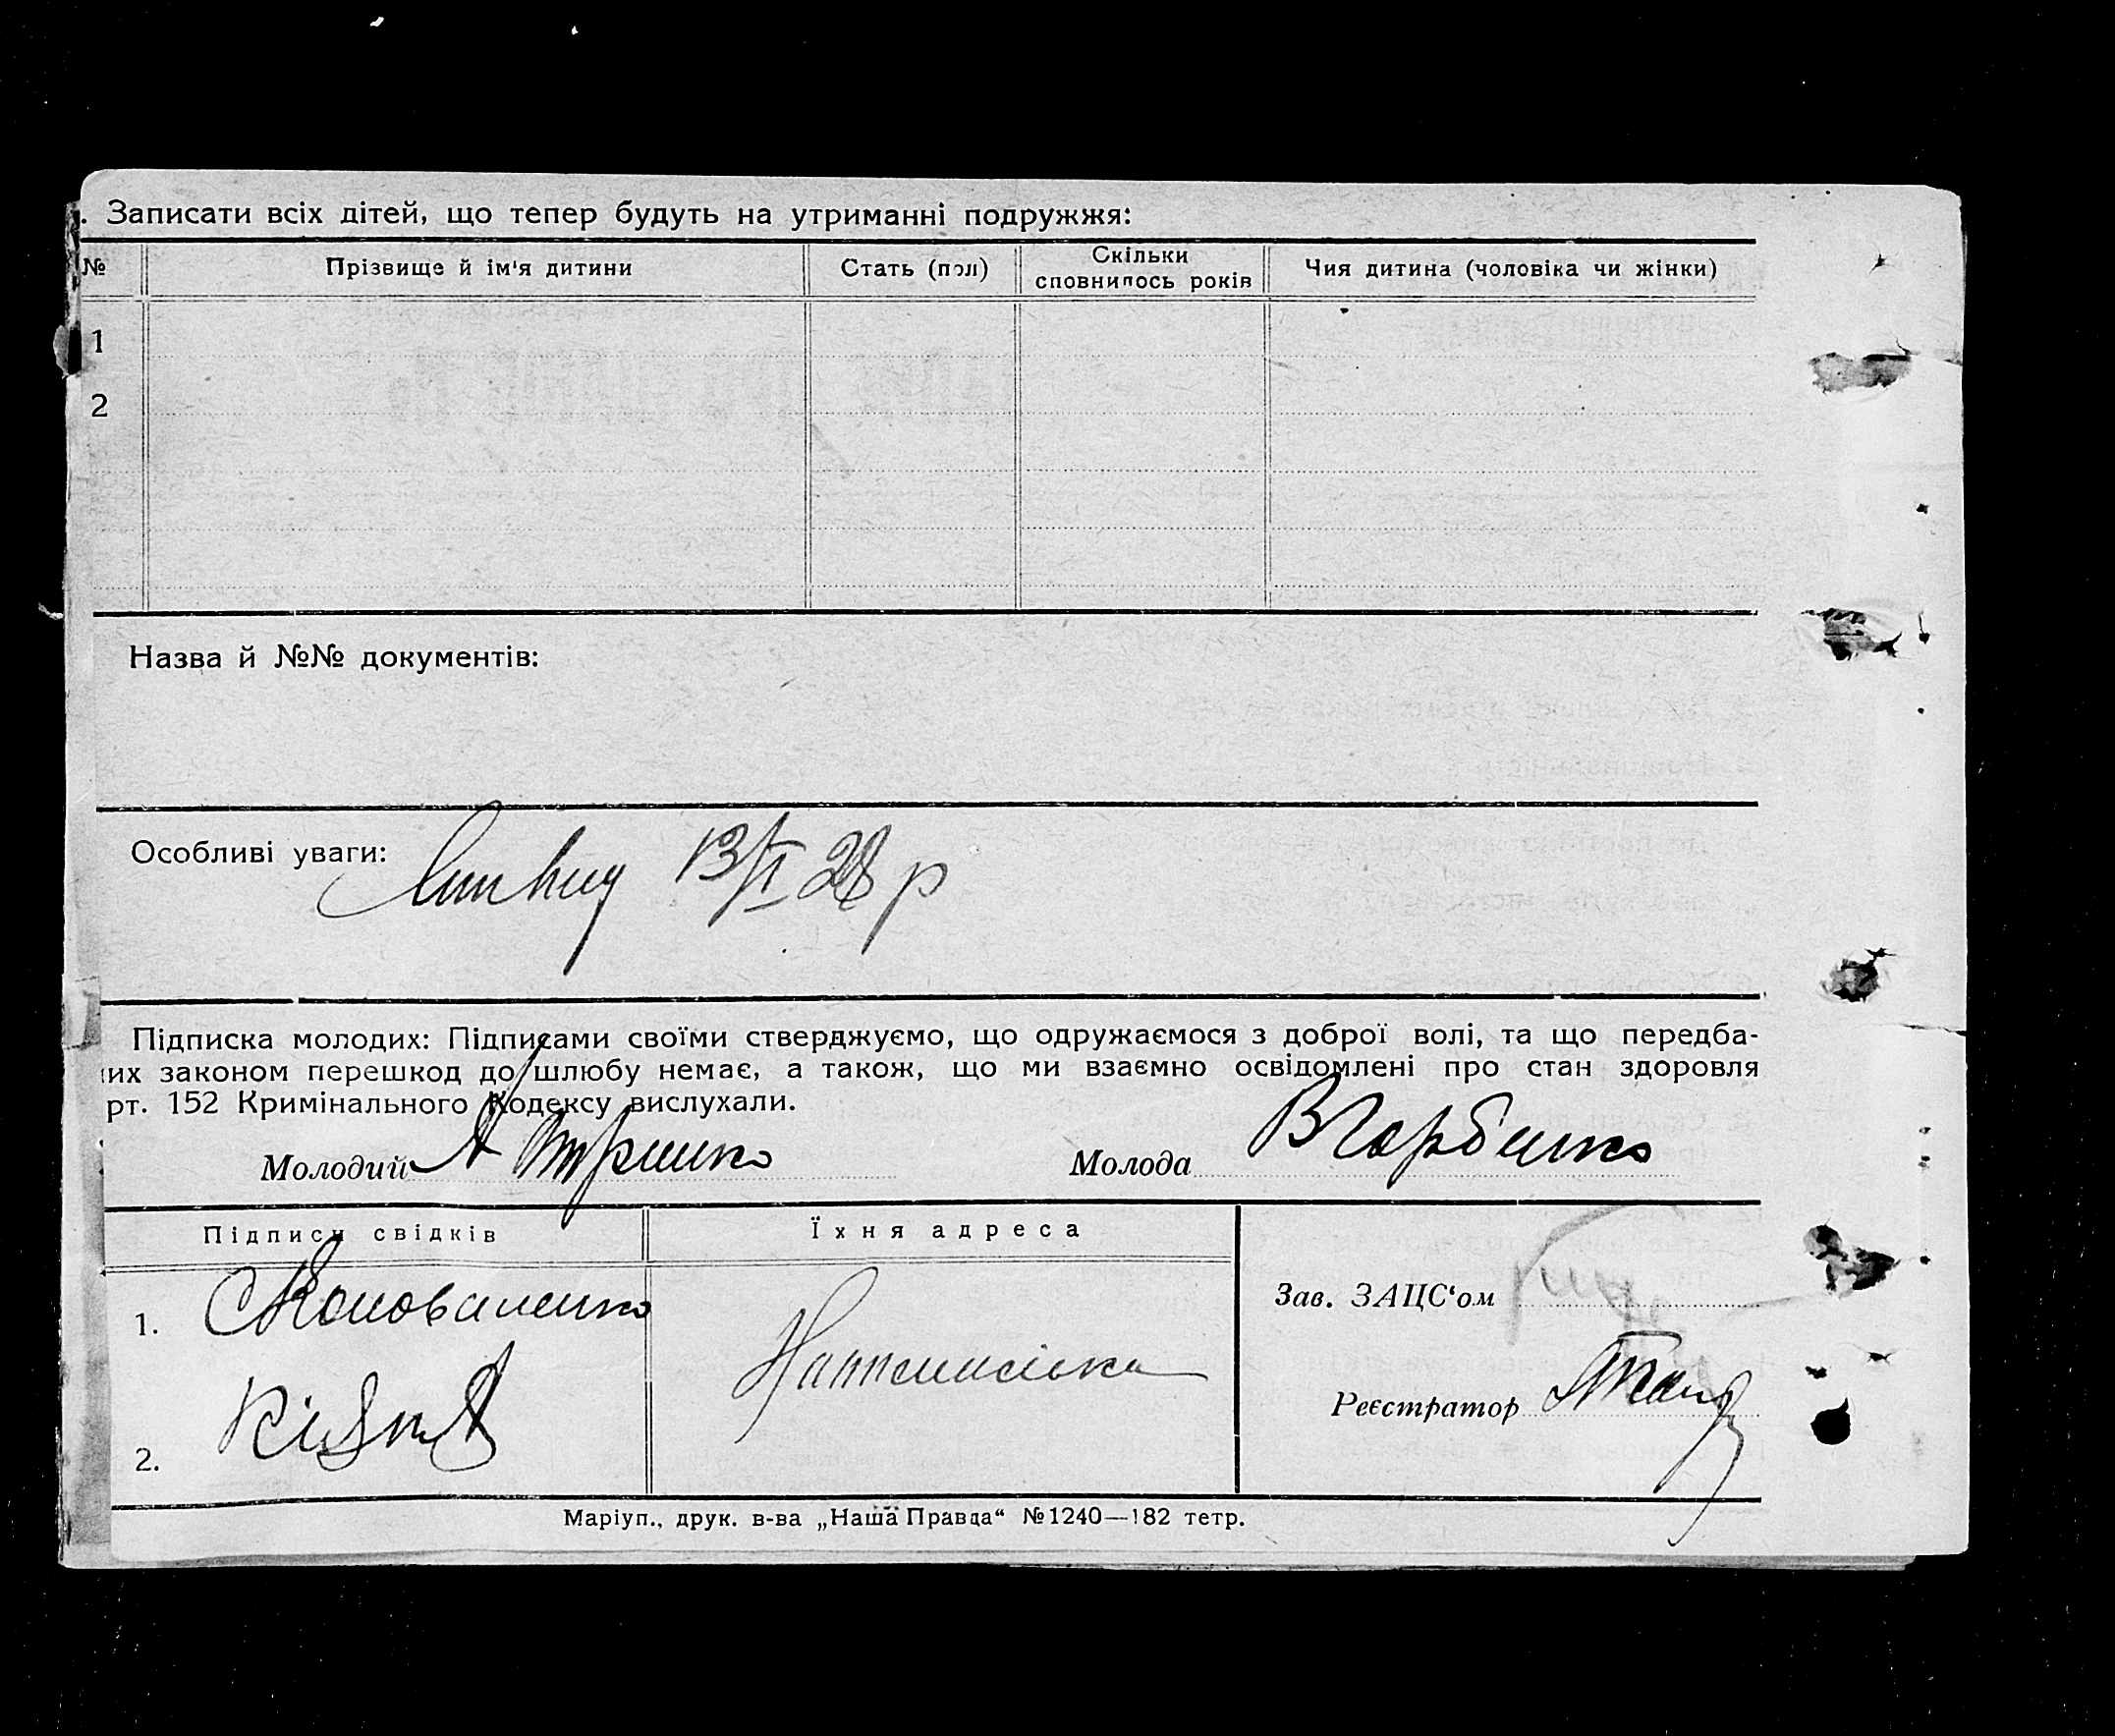 . Записати всіх дітей, що тепер будуть на утриманні подружжя:
№ Прізвище й ім'я дитини Стать (пол) Скільки сповнилось років Чия дитина (чоловіка чи жінки)
1
2
Назва й №№ документів:
Особливі уваги: 13/I 28 р
Підписка молодих: Підписами своїми стверджуємо, що одружаємося з доброї волі, та що передба-
их законом перешкод до шлюбу немає, а також, що ми взаємно освідомлені про стан здоровля
рт. 152 Кримінального Кодексу вислухали.
Молодий А Молода В Горбенко
Підписи свідків Їхня адреса
1. С Коноваленко
Зав. ЗАЦС'ом
Реєстратор
2.
Маріуп., друк. в-ва „Наша Правда“ №1240—182 тетр.